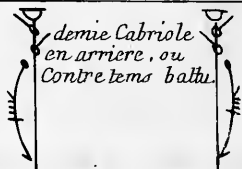 demie Cabriole
en arriere, ou
Contretems battu.